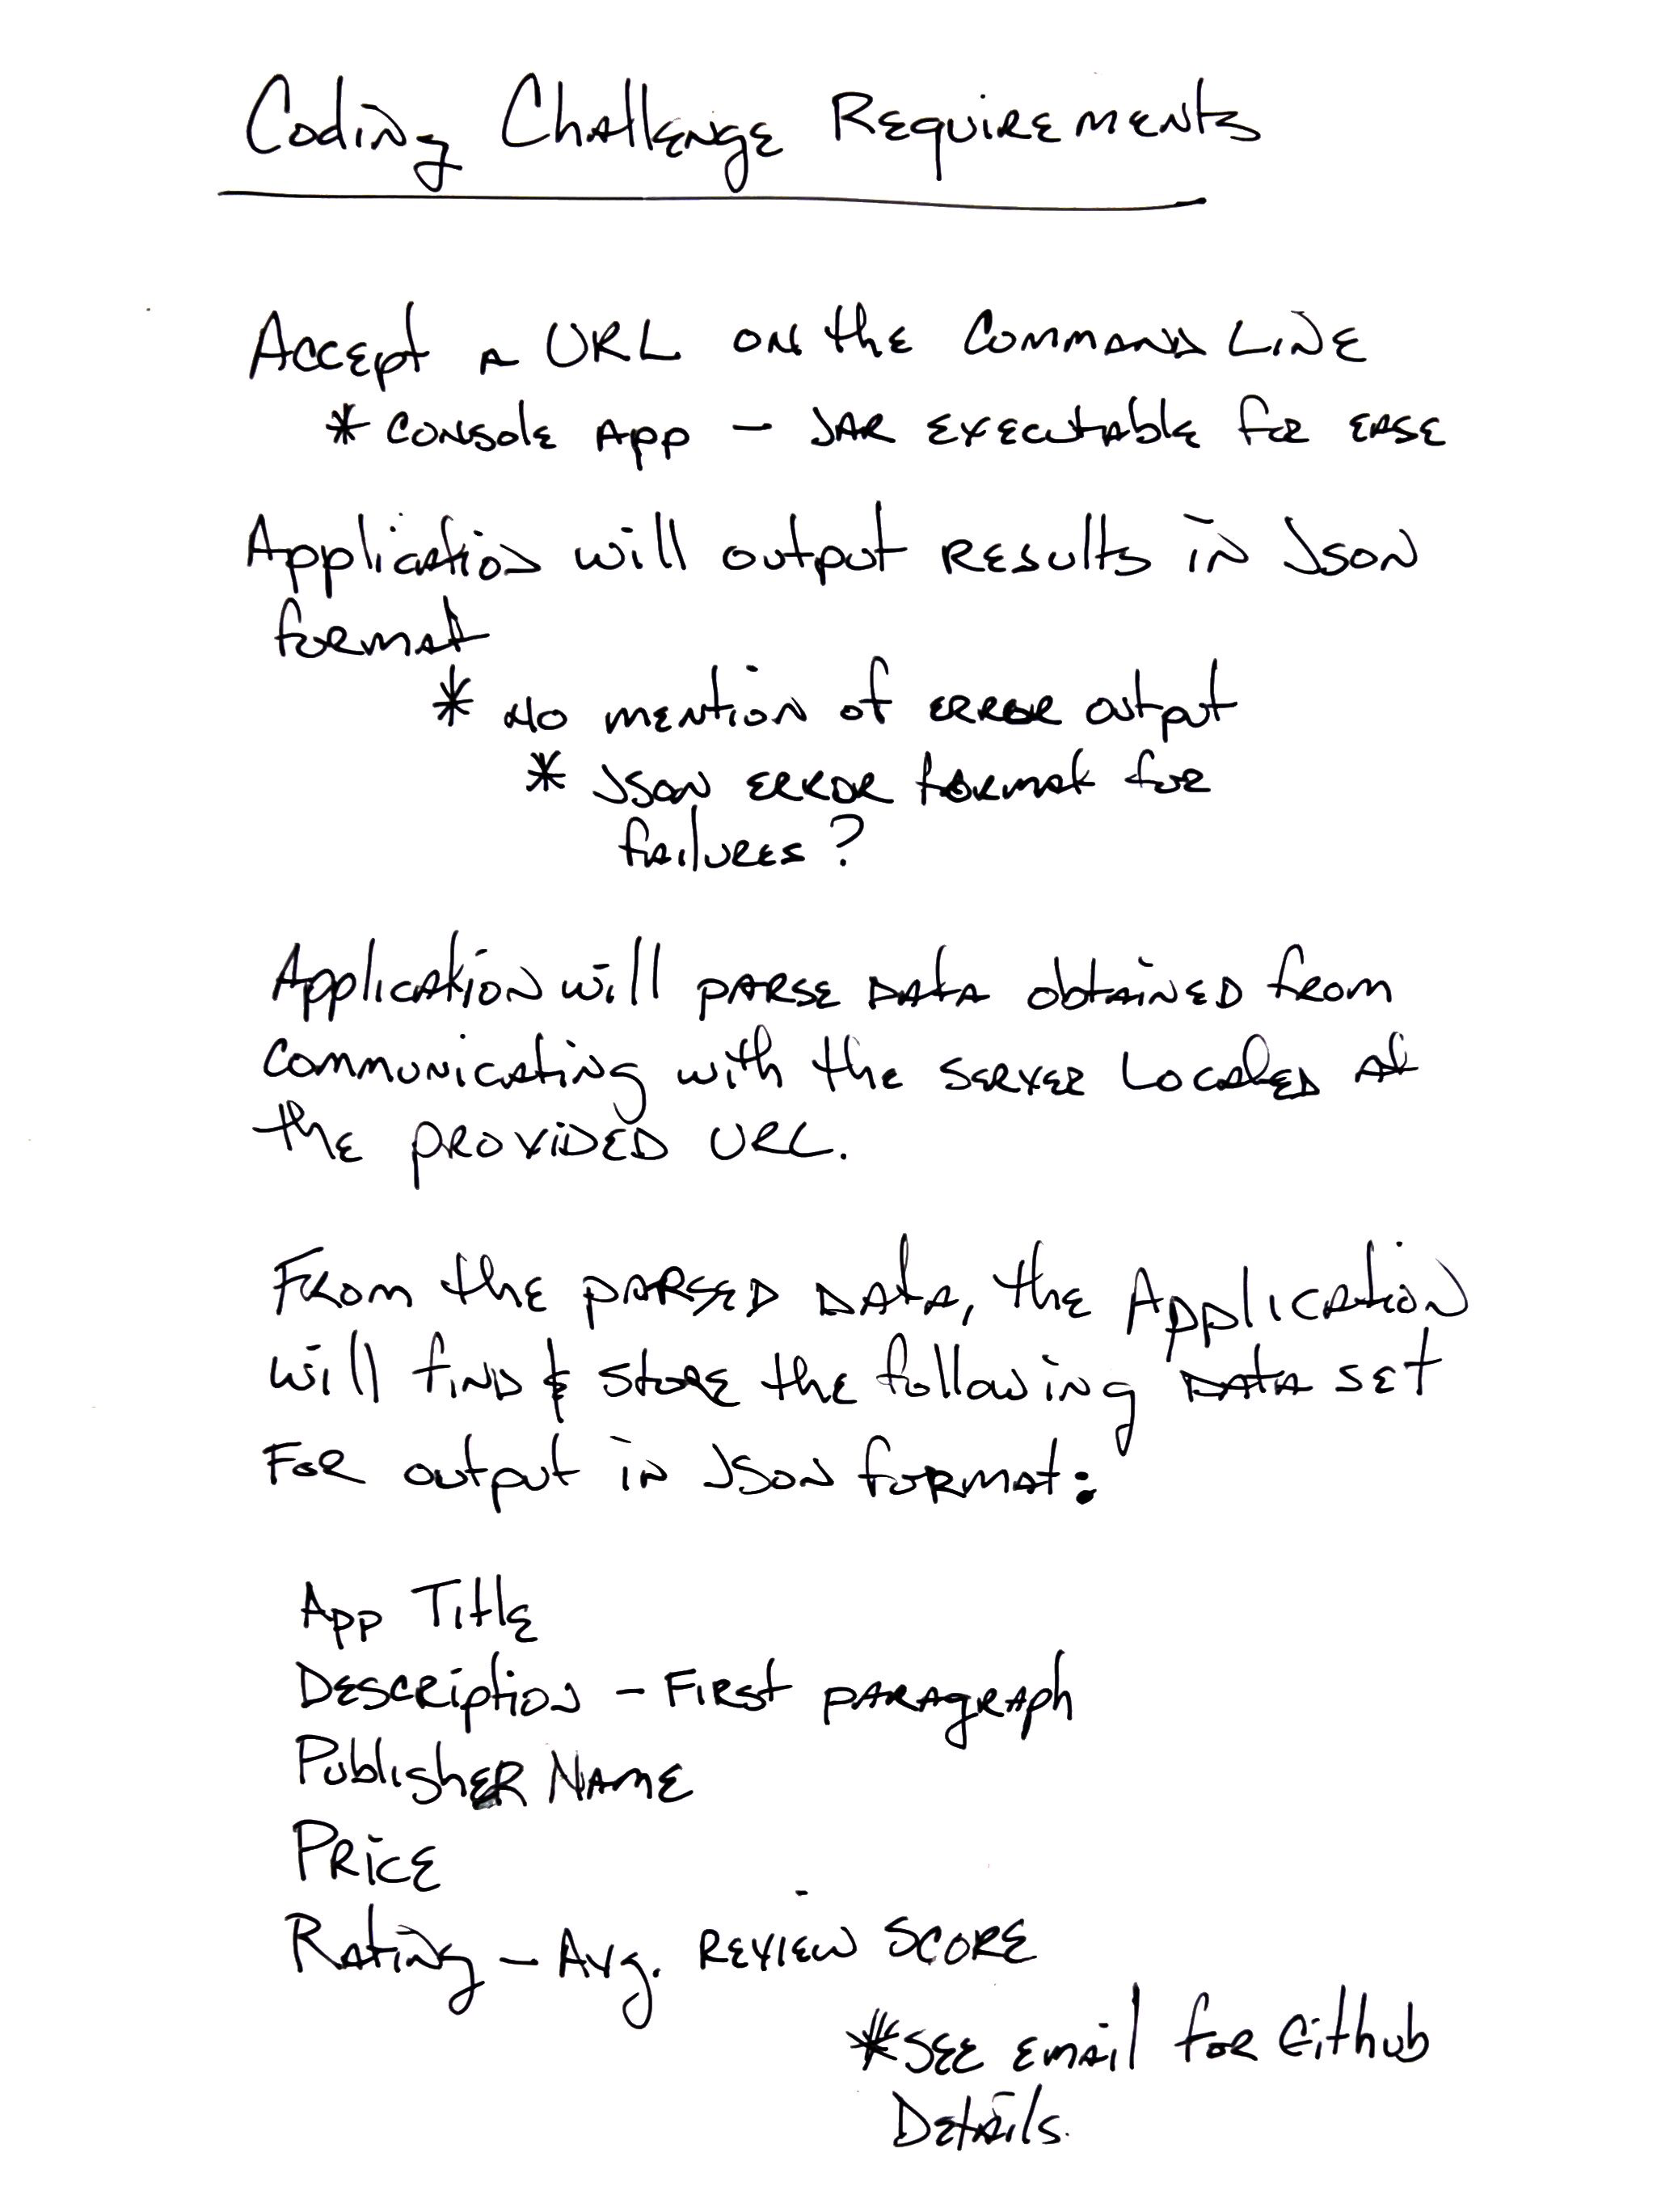 Coding Challenge Requirements
Accept a URL on the Command Line
* Console App - JAR executable for ease
Application will output results in Json
format
* No mention of error output
* Json error format for
failures?
Application will parse data obtained from
communicating with the server located at
the provided URL.
From the parsed data, the Application
will find & store the following data set
For output in Json format:
App Title
Description - First paragraph
Publisher Name
Price
Rating - Avg. review score
* See email for Github
Details.